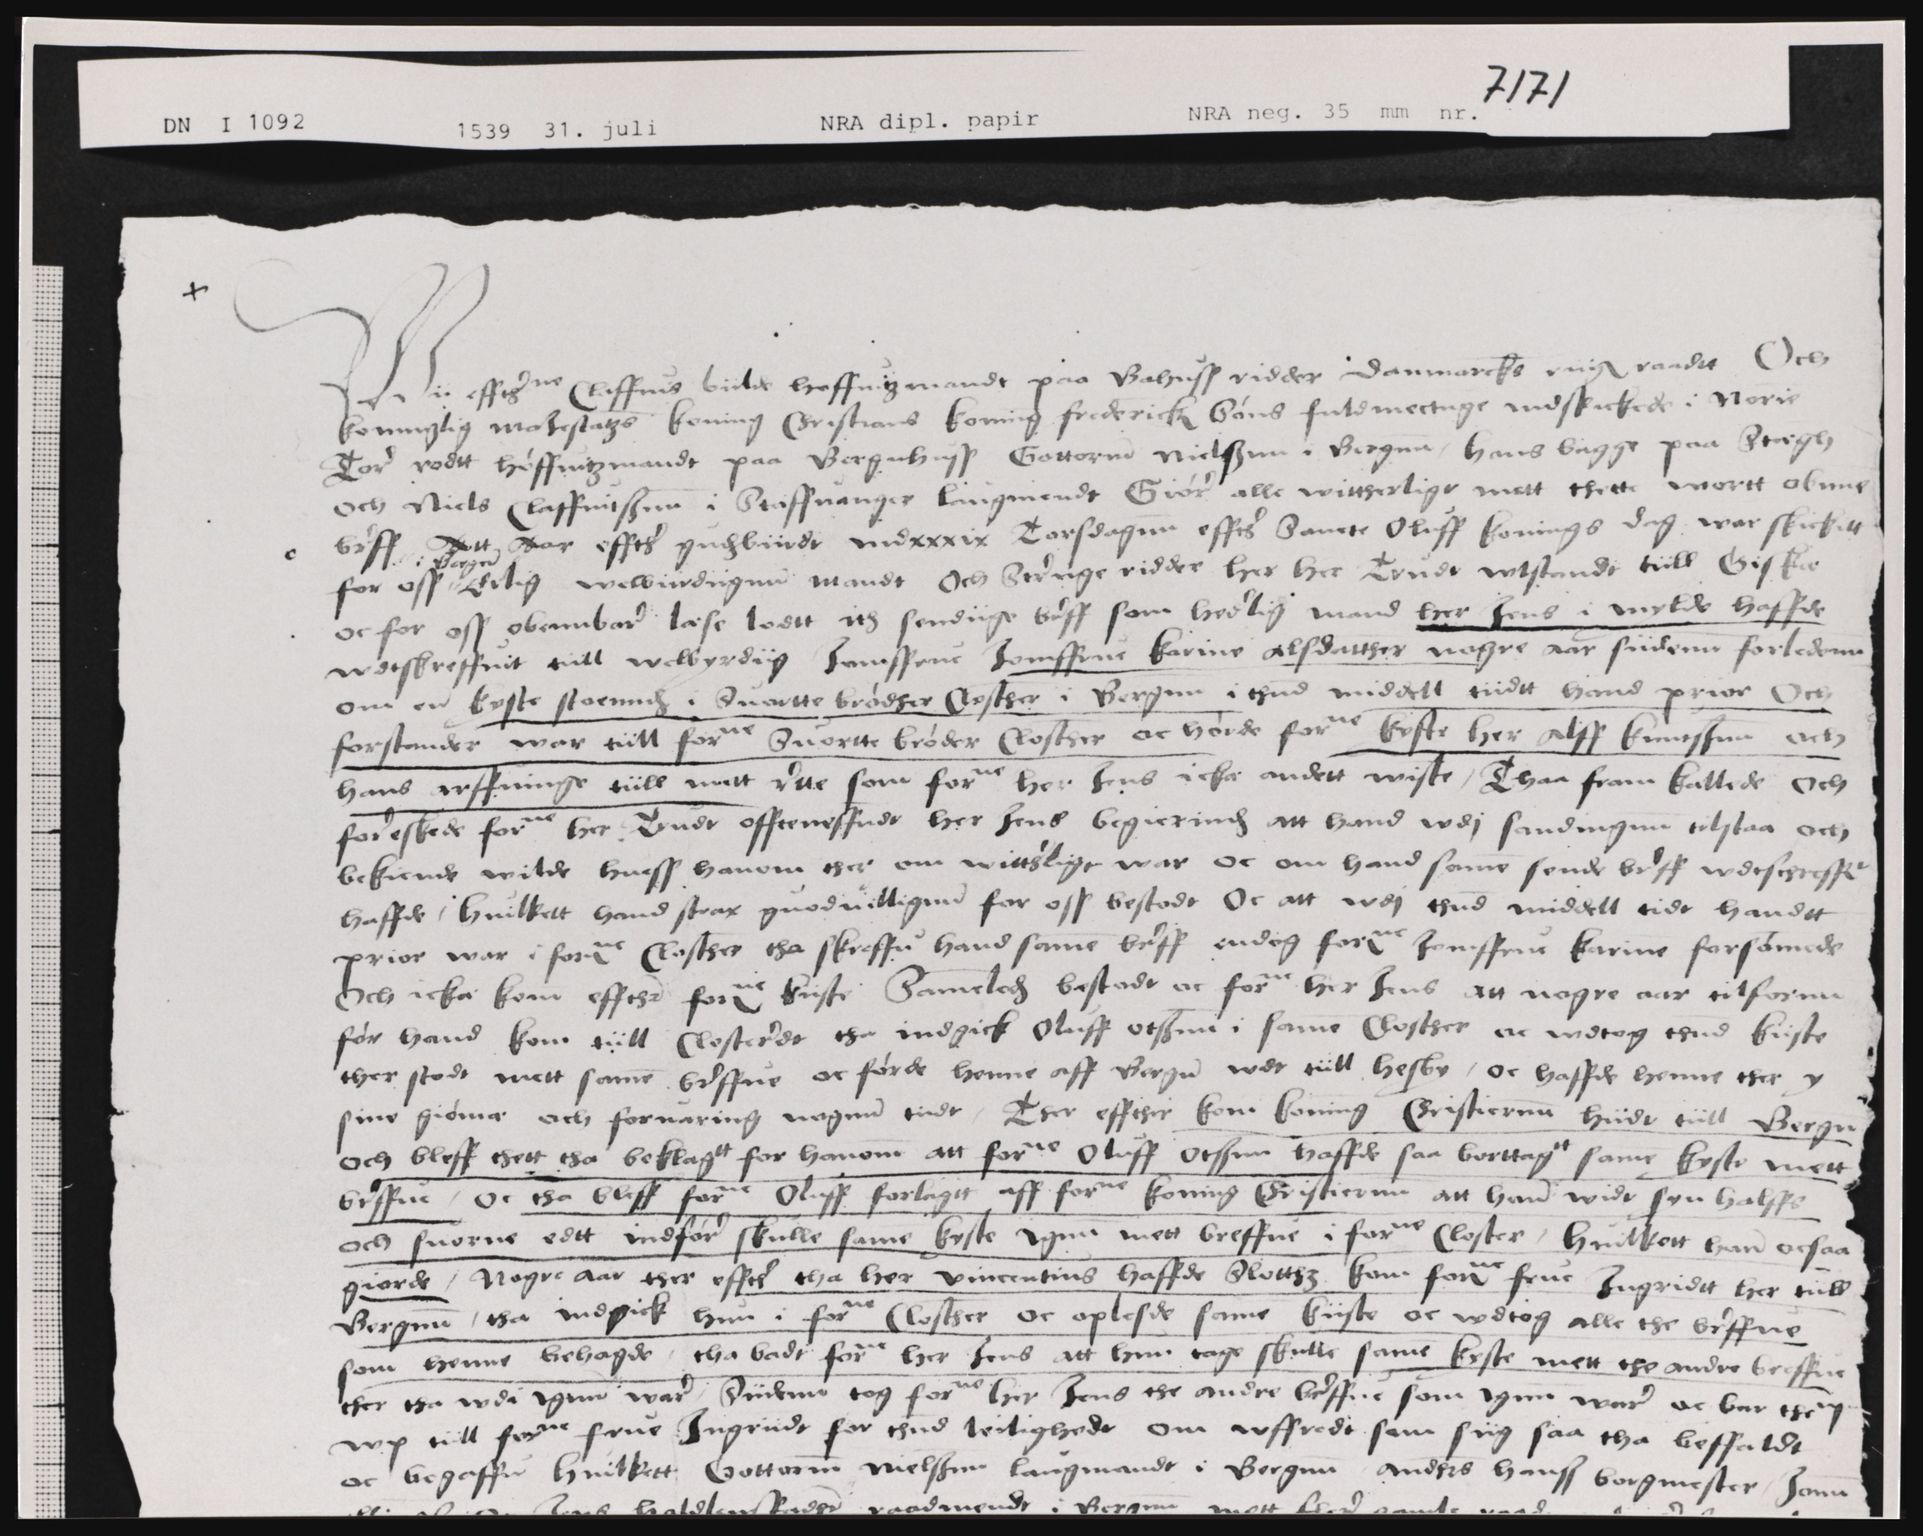 7171
DN I 1092 1539 31. juli NRA dipl. papir NRA neg. 35 mm nr.
Wii effthrne Claffuus biilde hoffuitzmandt paa Bahuss ridder Danmarcks riigs raadtt Och
koninglig maiestatzs koning Cristians koning frederickx søns fuldmectuge vdskickede i Norie
Tord rodtt høffuitzmandt paa Bergnhuss Gottorm Nielssøn i Bergnn, hans bagge paa Stegh
och Niels Claffuitssøn i Staffuanger laugmendt Giør alle wittherligt mett thette wortt obnne
breff Att Aar effther gudzbiurdt mdxxxix Torsdagnn effther Sancte Oluff konings dag war skickitt
i Bergen
for oss Erlig welburdiignn mandt Och Strenge ridder her her Trudt wlstandt tiill Giskæ
oc for oss obennbar læse lodtt ith sendiige breff som hederlig mand her Jens i mylde haffde
wdtskreffuit tiill welbyrdiig Jomffrue Jomffrue Karine alfsdatther nogre aar siidenn forledenn
om en kyste stoenndh i Suortte brødher Closther i Bergnn i thnd middell tiidtt hand prior Och
forstander war tiill forne Suortte brøder Closther oc hørde forne kyste her alff knutssøn och
hans arffuinge tiill mett rette som forne her Jens icke andett wiste, Thaa fram kallede Och
foreskede forne her Trudt offteneffndt her Jens begierindh att hand wdj sandingnn tilstaa och
bekiende wilde huess hanom ther om witthrligt war oc om hand same sende breff wdtschreffuit
haffde, huilkett hand strax guoduillignn for oss bestodt Oc att wdj thnd middell tidt handtt
prior war i forne Closther tha skreffu hand same breff endog forne Jomffrue Karine forsømede
Och icke kom effther forne kiiste Sameledh bestodt oc forne her Jens att nogre aar tilfornn
før hand kom tiill Closteredt tha indgick Oluff otssøn i same Closther oc wdtog thnd kiiste
ther stodt mett same breffue oc førde henne aff Bergn wdt tiill hesby, oc haffde henne ther y
sine giømæ och foruaring nognn tiidt, Ther effther kom koning Cristiernn hiidt tiill Bergn
och bleff thett tha beklagtt for hanom att forne Oluff Otssøn haffde saa borttagtt same kyste mett
breffue, Oc tha bleff forne Oluff forlagtt aff forne koning Cristiernn att hand widt syn halss
och suorne edtt indføre skulle same kyste ignn mett breffue i forne Closter, huilkett hand ocsaa
giorde, Nogre aar ther effther tha her vincentius haffde Slotthz kom forne frue Ingridtt her tiill
Bergnn, tha indgick hun i forne Closther oc oplesde same kiiste oc wdtog alle the breffue
som henne behagde, tha badt forne her Jens att hun tage skulle same kyste mett the andre breffue
ther tha wdi ignn war, Siidenn tog forne her Jens the andre breffue som ignn war oc bar thenn
wp tiill forne frue Ingriidt for thnd leilighedt om wffredt som siig saa tha beffaldt
oc begaffu huilkett Gottorm Nielssøn laugmandt i Bergnn Anders hanss borgmester, Jonn